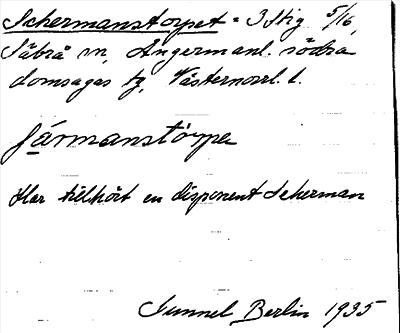 Schermanstorpet = 3 Stig 5/16,
Säbrå sn, Ångermanl. södra
domsagas tg, Västernorrl. l.
ʃärmanstórpe
Har tillhört en disponent Scherman
Gunnel Berlin 1935